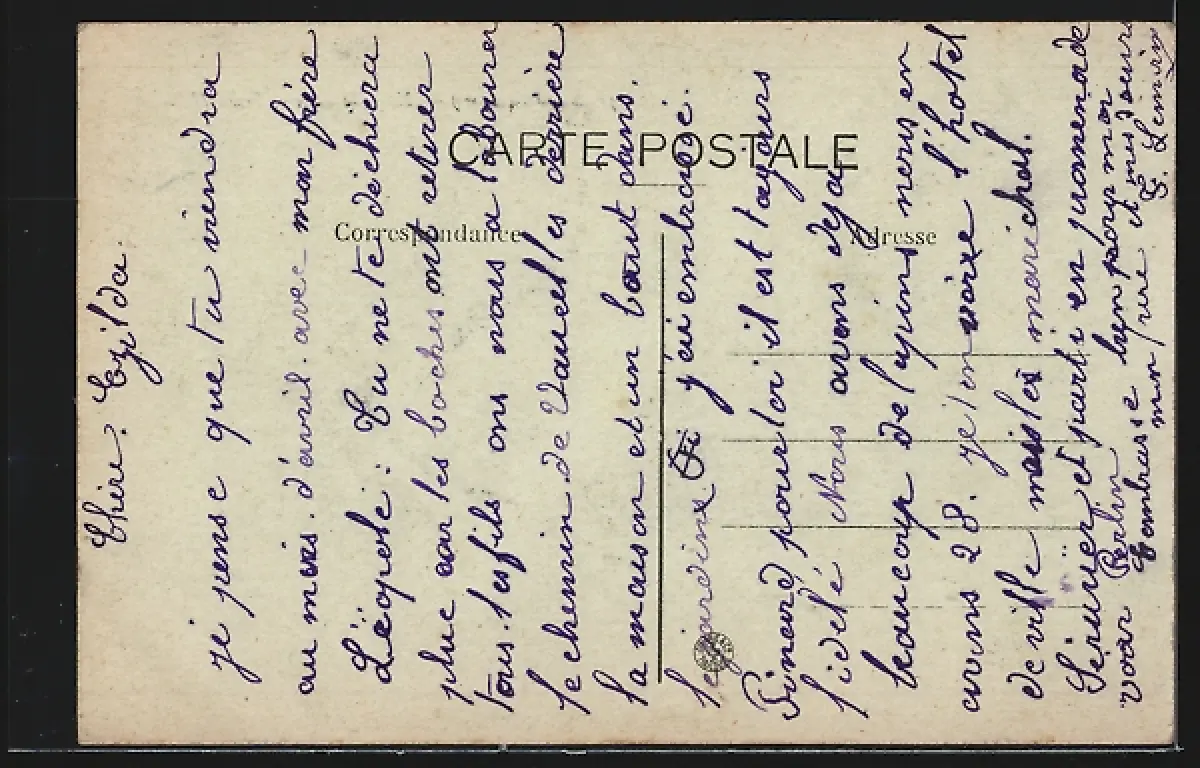 CARTE POSTALE
Correspondance
Adresse
Chère. Ezilda.
je pense que tu viendra
au mois. d'avril. avec mon frère
Léopole: Tu ne te déchiera
plue car les boches ont retirer
tous. les fils ons nous a labourer
le chemin de Vaucelles derière
la maison et un bout dans.
le jardine j'ai embrace.
Pineard pour toi il est tajours
fidele Nous avons deja
beaucoup de lapins nous en
avons 28. je l'en voire l'hotel
de ville mais les maréchal.
Séaurier et parti en prommenade
voar Perlin
embrasse bien pour moi
mon père et mes
E. Lemrin